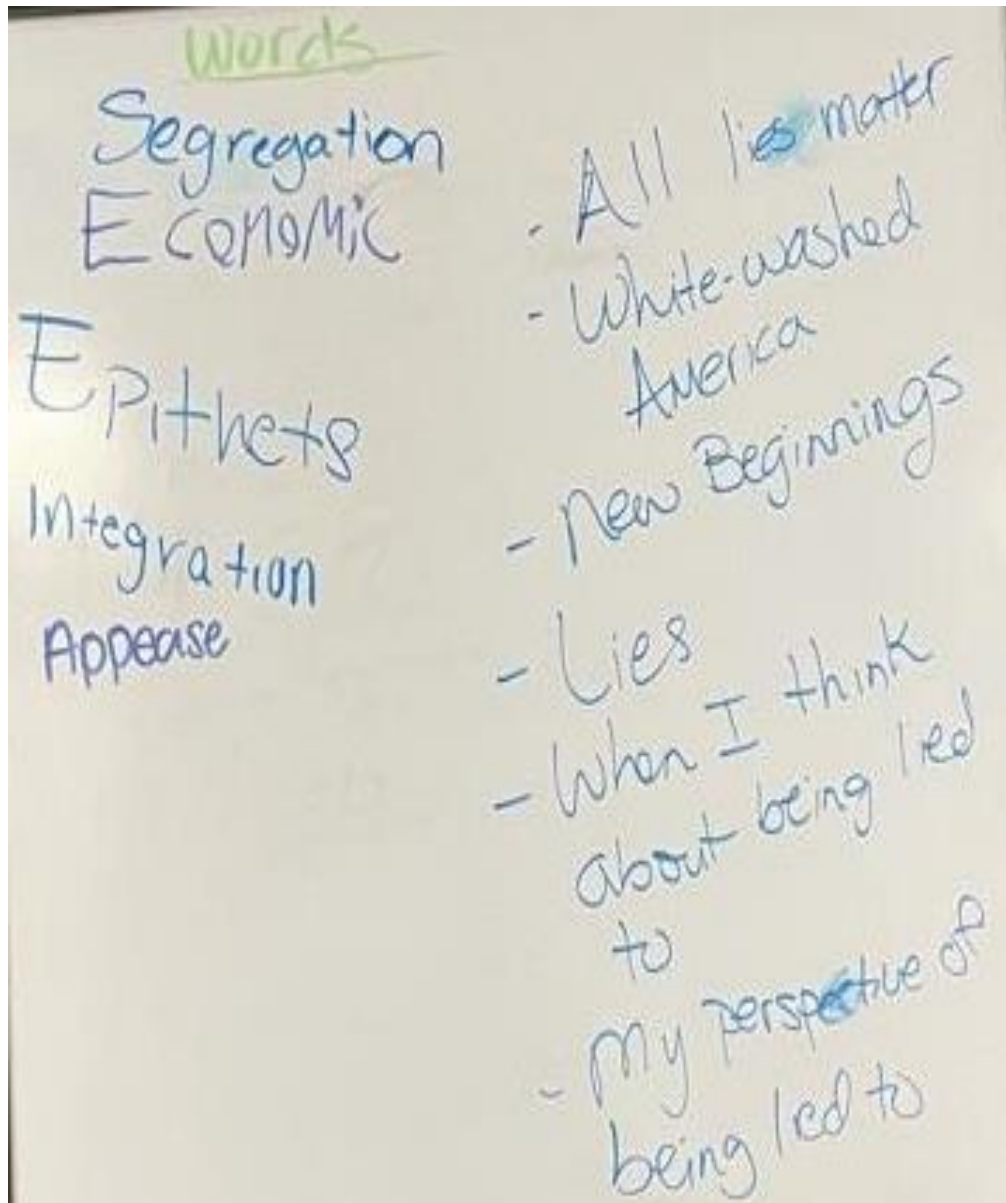 Words
Segregation
Economic
Epithets
Integration
Appease
- All lies matter
- White-washed
America
- New Beginnings
- Lies
- When I think
about being lied
to
- My perspective of
being lied to